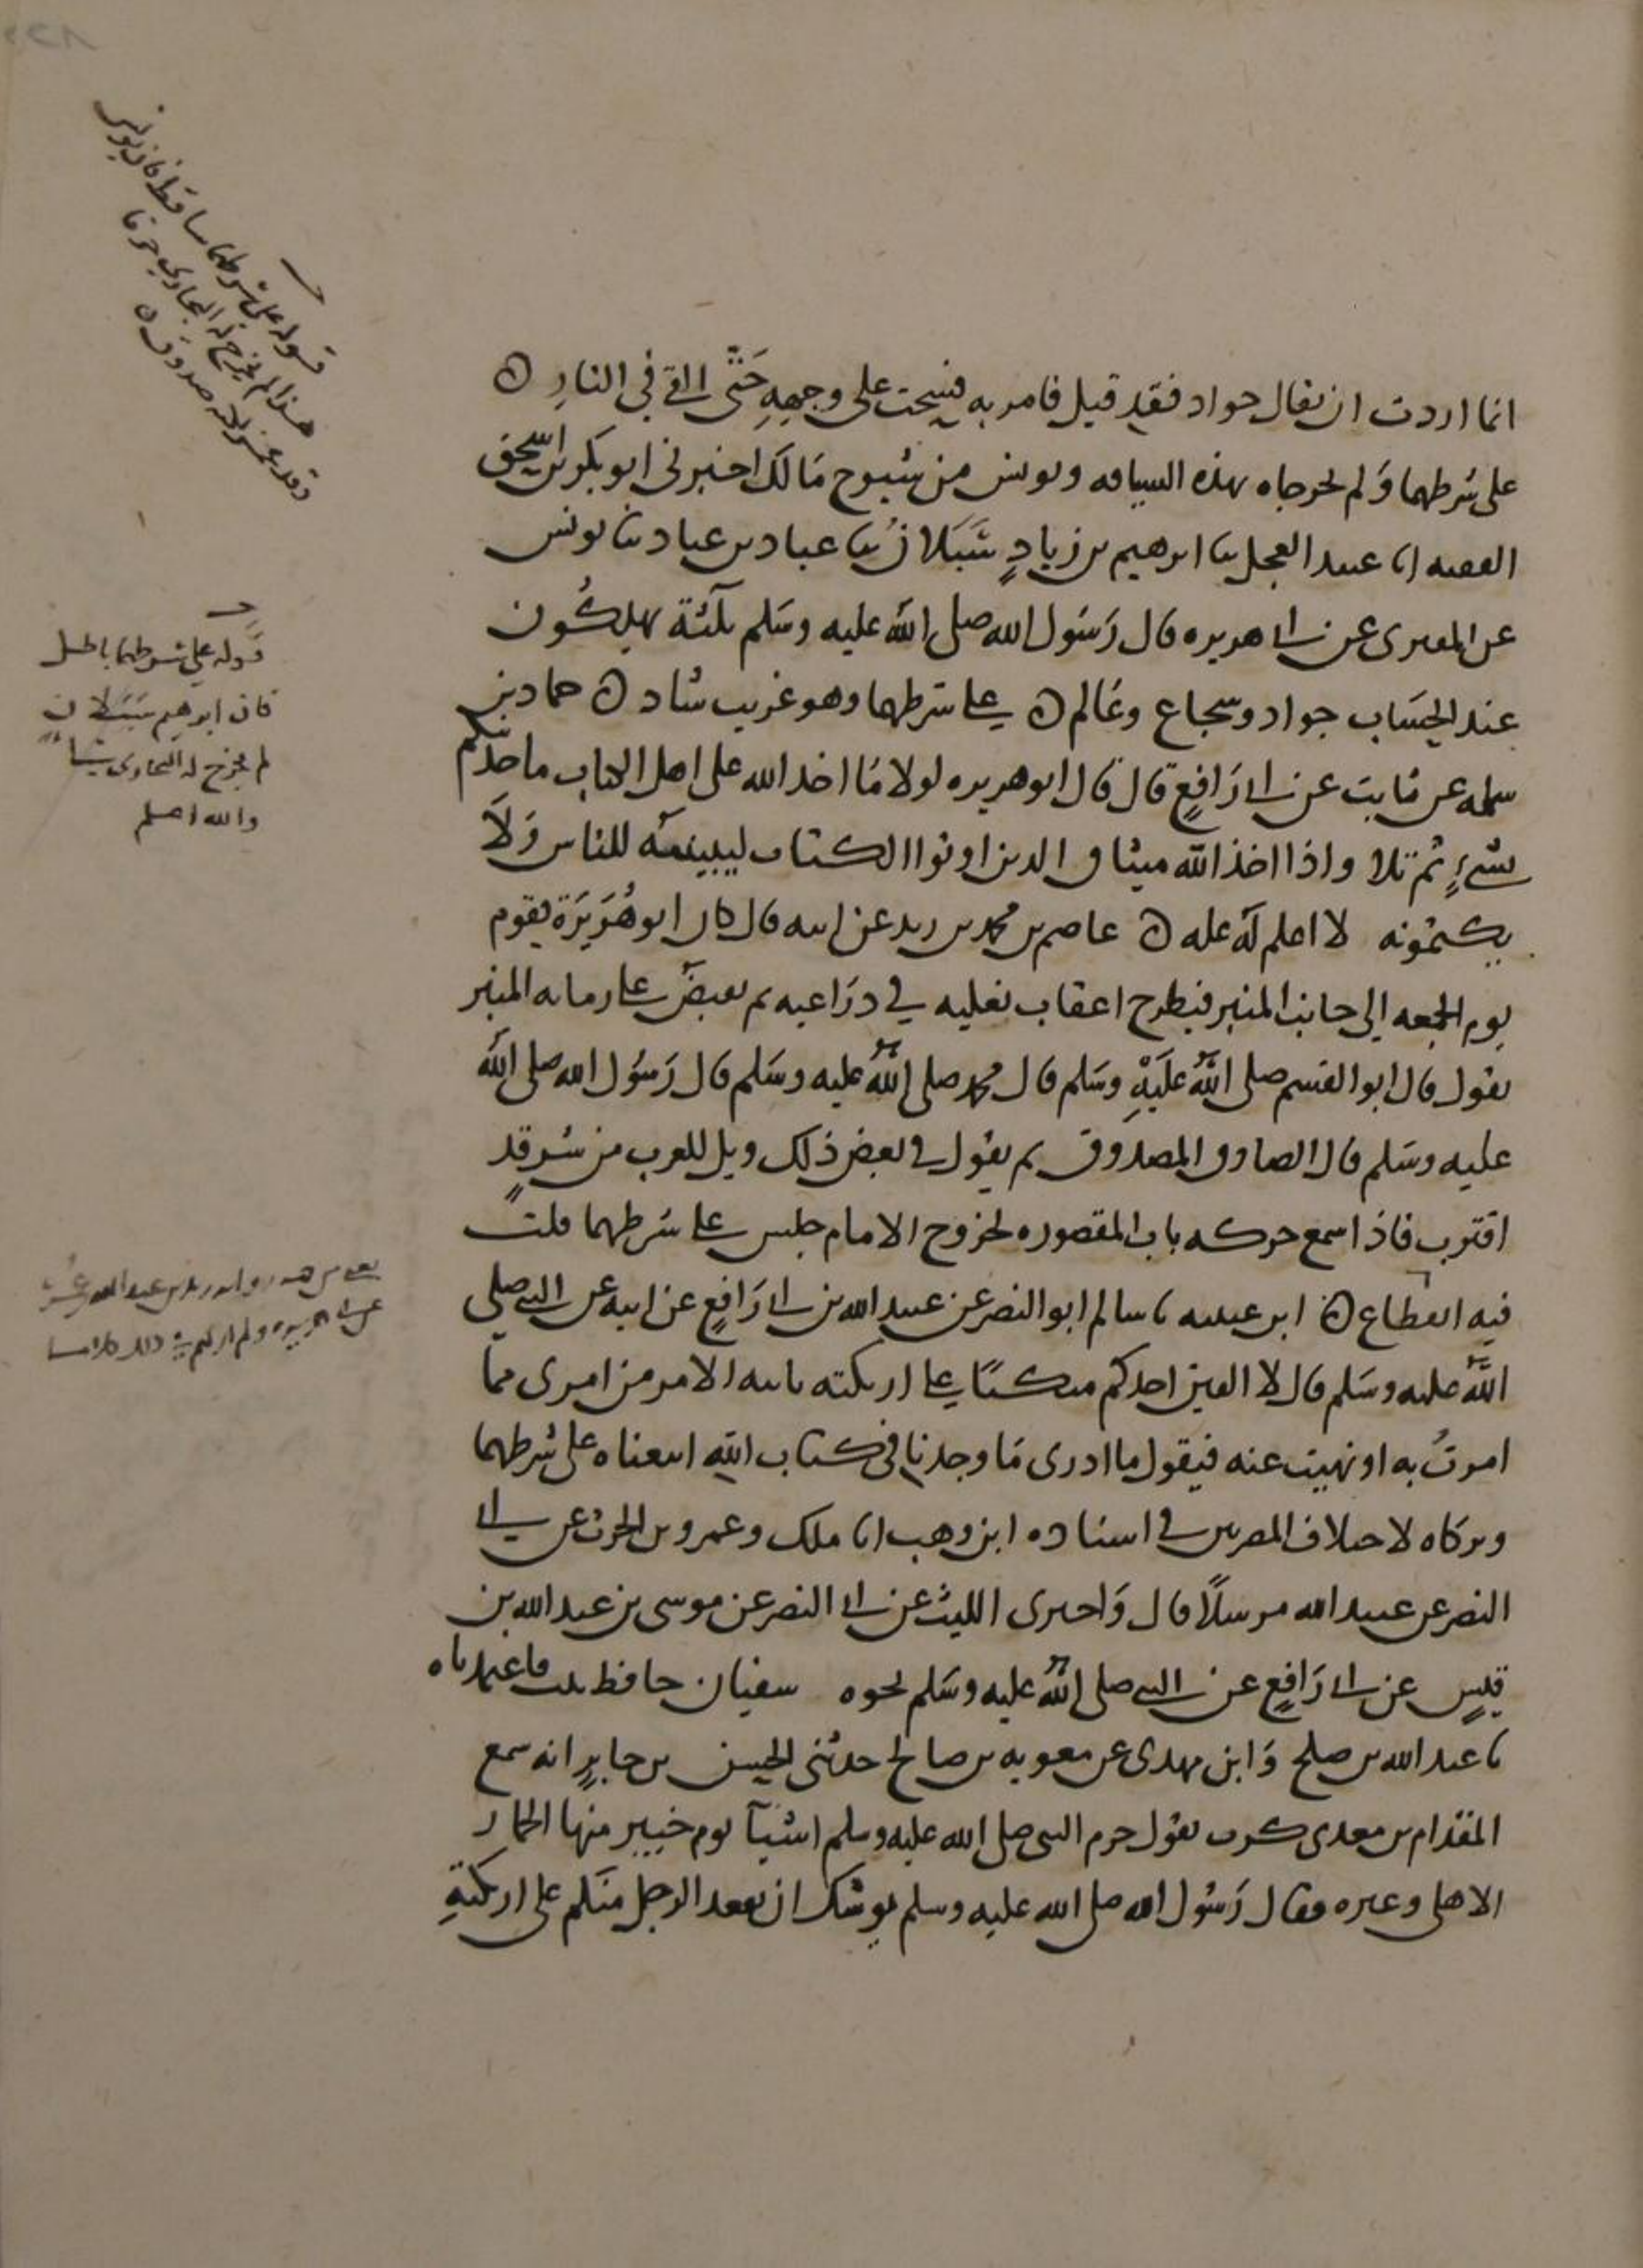 انما اردت ان يقال جواد فقد قيل فامر به فسحب على وجهه حَتَّى القي في النارِ ن
على شرطهما وَلم يخرجاه بهذه السياقه ويونس من شيوخ مَالك اخبرني ابو بكر بن اسحق
الفقيه انا عبيد العجل ثنا ابرهيم بن زيادٍ سَبَلان ثنا عباد بن عباد ثنا يونس
عن المقبرى عن ابي هريره قال رَسُول الله صلى الله عليه وسَلم ثلثة يهلكُون
عند الحِسَاب جواد وشجاع وعَالم ن على شرطهما وهو غريب شاذ ن حماد بن
سلمه عن ثابت عن ابي رَافعٍ قال قال ابو هريره لولا مَا اخذ الله على اهل الكتاب ما حدثتكم
بشيءٍ ثم تلا واذا اخذ الله ميثاق الذين اوتوا الكتاب ليبيننه للناس وَلَا
يكتمونه لا اعلم له عله ن عاصم بن محمد بن زيد عن ابيه قال كان ابو هُرَيرَة يقوم
يوم الجمعه الى جانب المنبر فيطرح اعقاب نعليه في ذرَاعيه ثم يقبض على رمانه المنبر
يقول قال ابو القسم صلى اللهُ عَلَيْهِ وسَلم قال محمد صلى اللهُ عليه وسَلم قال رَسُول الله صلى الله
عليه وسَلم قال الصادق المصدوق ثم يقول في بعض ذلك ويل للعرب من شرٍ قد
اقترب فاذا سمع حركه باب المقصوره لخروج الامام جلس على شرطهما قلت
فيه انقطاع ن ابن عيينه نا سالم ابو النضر عن عبيد الله بن ابي رَافعٍ عن ابيه عن النبي صلى
اللهُ عليه وسَلم قال لا الفين احدكم متكئًا على اريكته ياتيه الامر من امرى مما
امرتُ به او نهيت عنه فيقول ما ادرى مَا وجدنا في كتاب الله اتبعناه على شرطهما
وتركاه لاختلاف المصريين في اسناده ابن وهب انا ملك وعمرو بن الحرث عن ابي
النضر عن عبيد الله مرسلًا قال وَاخبرنى الليث عن ابي النضر عن موسى بن عبد الله بن
قيسٍ عن ابي رَافعٍ عن النبي صلى اللهُ عليه وسَلم نحوه سفيان حافظ ثبت فاعتمدناه
نا عبد الله بن صلح وَابن مهدى عن معويه بن صالح حدثنى الحسن بن جابرٍ انه سمع
المقدام بن معدى كرب يقول حرم النبي صلى الله عليه وسلم اشيآ يوم خيبر منها الحمار
الاهلى وغيره فقال رَسُول الله صلى الله عليه وسلم يوشك ان يقعد الرجل منكم على اريكتهِ
قوله على شرطهما ساقط فان يونس
هذا لم يخرج له البخاري حرفا
وقد غمز لانه صدوق ن
قوله على شرطهما باطل
فان ابرهيم سَبَلان
لم يخرج له البخارى شيئا
والله اعلم